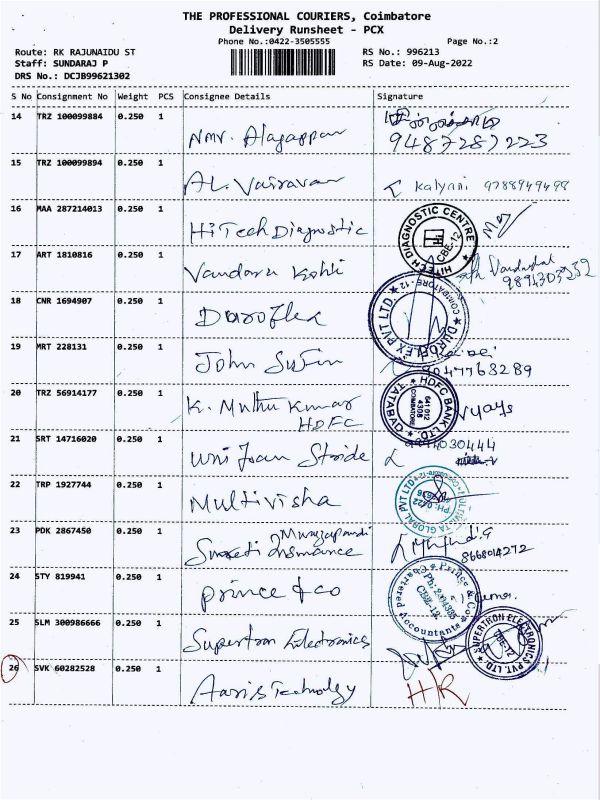 THE PROFESSIONAL COURIERS, Coimbatore
Delivery Runsheet - PCX
Phone No.:0422-3505555 Page No.:2
Route: RK RAJUNAIDU ST RS No.: 996213
Staff: SUNDARAJ P RS Date: 09-Aug-2022
DRS No.: DCJB99621302
S No Consignment No Weight PCS Consignee Details Signature
14 TRZ 100099884 0.250 1
NMR. Alagappan 9487287223
15 TRZ 100099894 0.250 1
AL. Vairavan Kalyani 9788949498
16 MAA 287214013 0.250 1
HiTech Diagnostic HITECH DIAGNOSTIC CENTRE CBE-12
17 ART 1810816 0.250 1
Vandana Kohli 9894303252
18 CNR 1694907 0.250 1
Duroflex DUROFLEX PVT LTD. COIMBATORE - 12
19 MRT 228131 0.250 1
John 9047768289
20 TRZ 56914177 0.250 1
K. Muthu Kumar HDFC BANK LTD TATABAD COIMBATORE 641 012 Vijays
HDFC
21 SRT 14716020 0.250 1
Stride
22 TRP 1927744 0.250 1
Multivisha GLOBAL PVT LTD
23 PDK 2867450 0.250 1
Insurance 8668014272
24 STY 819941 0.250 1
prince & co Prince & Co Chartered Accountants CBE-12
25 SLM 300986666 0.250 1
Supertron Electronics SUPERTRON ELECTRONICS PVT. LTD. CBE-12
26 SVK 60282528 0.250 1
Technology HR